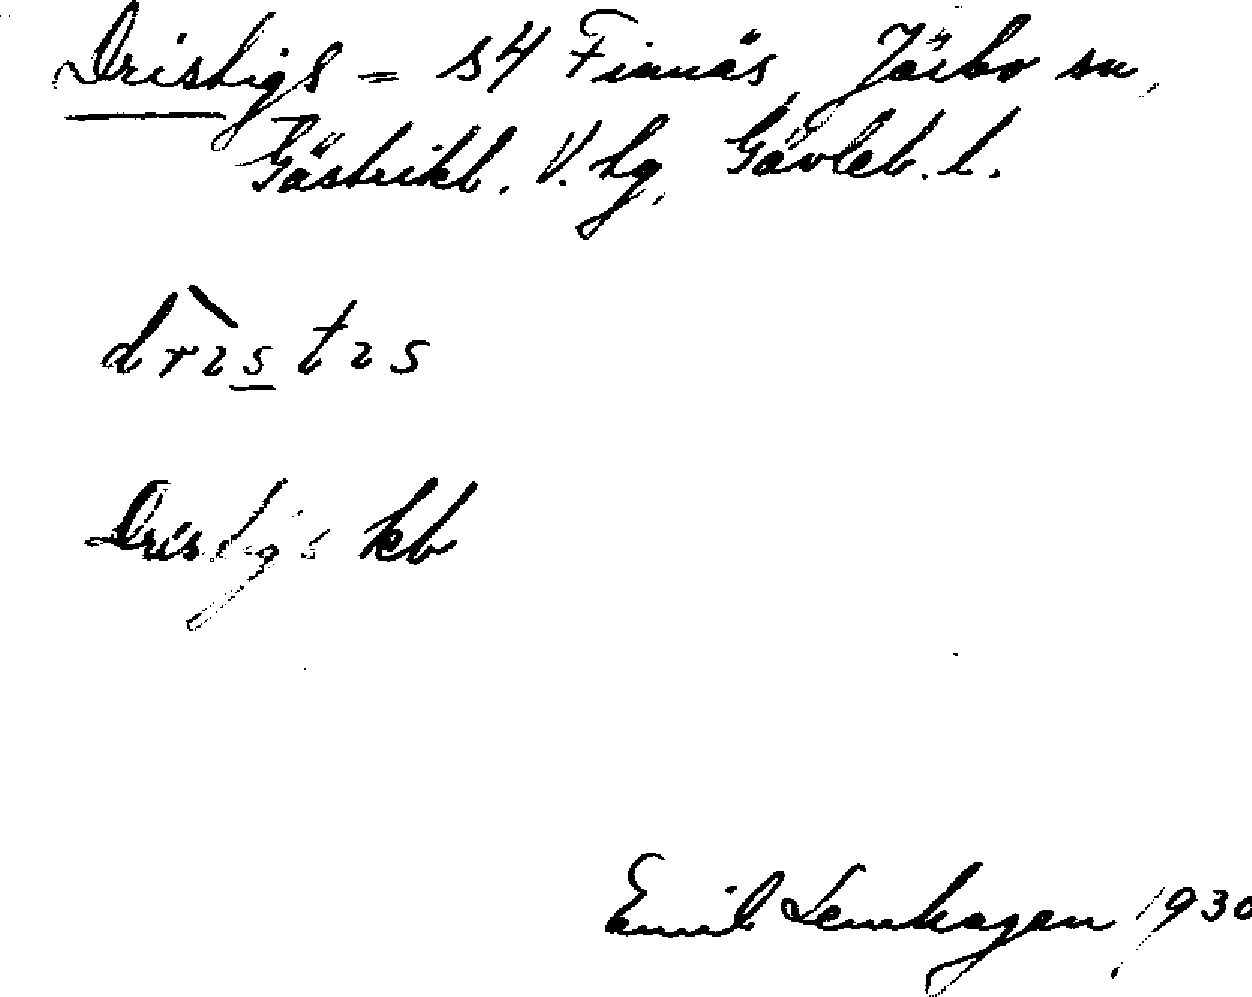 Dristigs = s4 Finnäs, Järbo sn,
Gästrikl. V. hg, Gävleb. l.
drìs̲tɩs
Dristigs kb
Emil Lennhagen, 1930